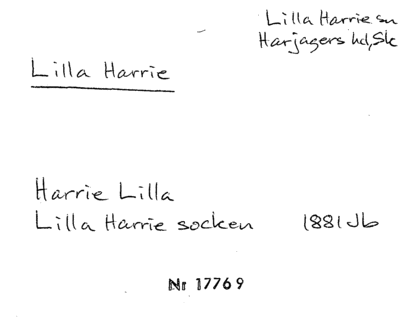 Lilla Harrie sn
Harjagers hd, Sk
Lilla Harrie
Harrie Lilla
Lilla Harrie socken 1881 Jb
Nr 17769